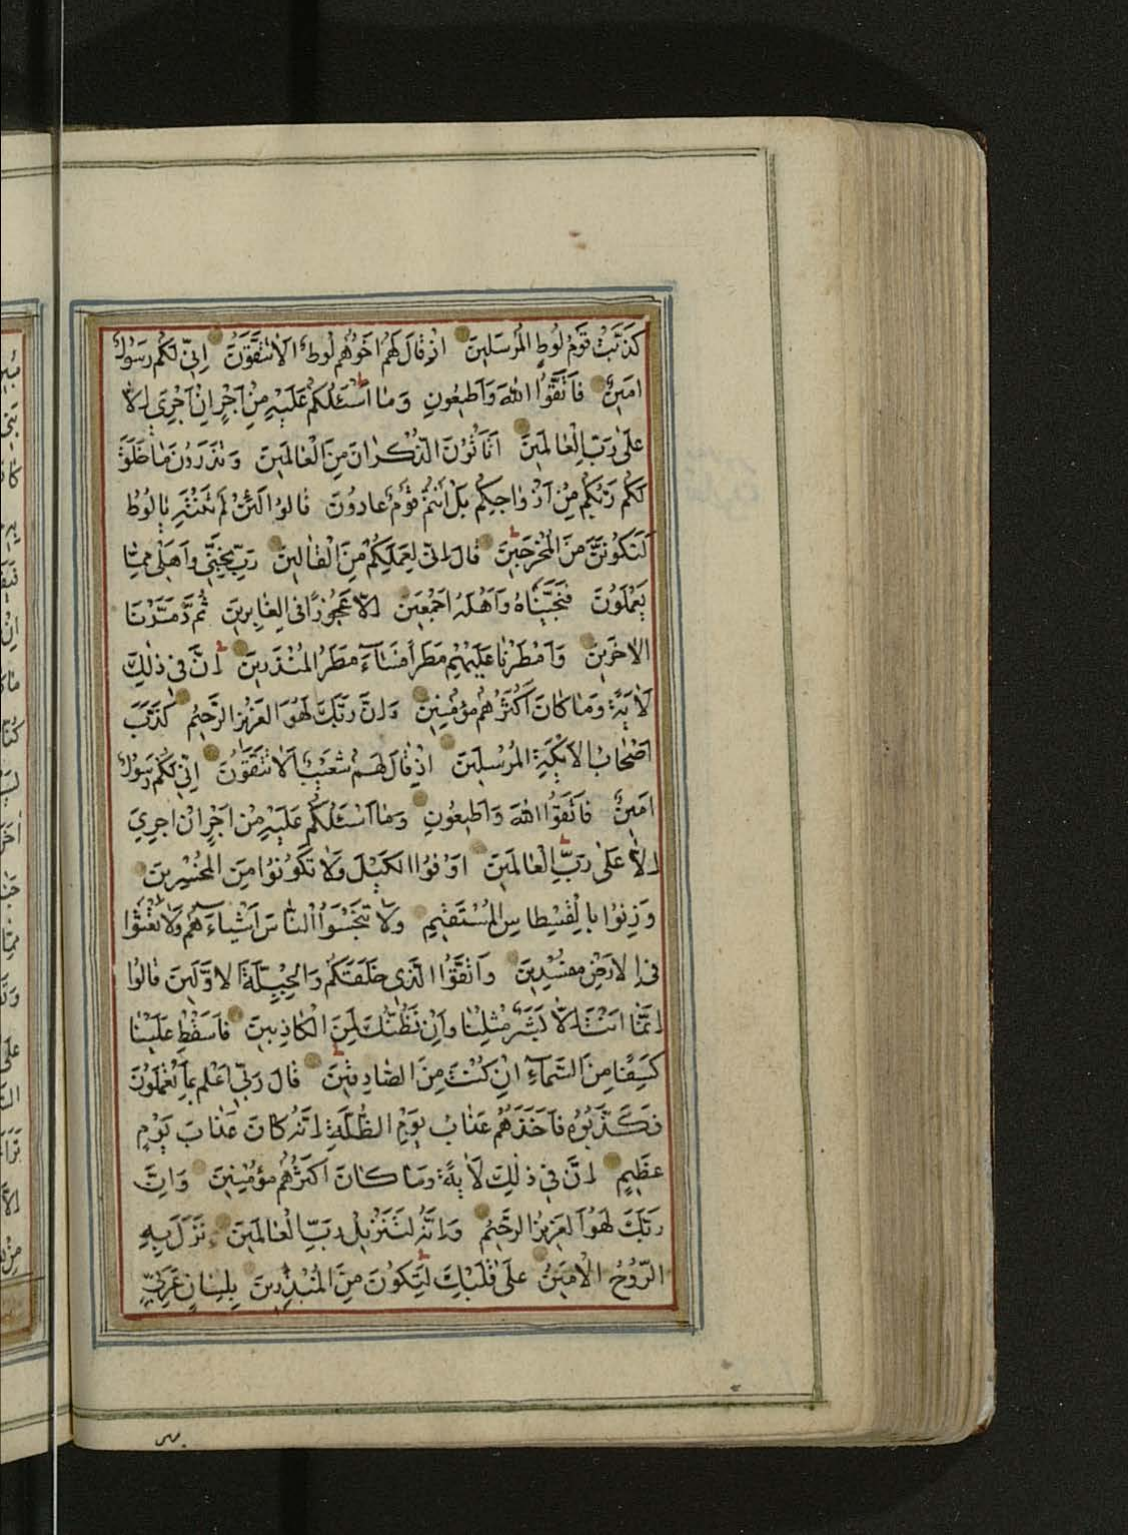 كَذَّبَتْ قَوْمُ لُوطٍ الْمُرْسَلِينَ اِذْ قَالَ لَهُمْ اَخُوهُمْ لُوطٌ اَلَا تَتَّقُونَ اِنِّي لَكُمْ رَسُولٌ
اَمِينٌ فَاتَّقُوا اللّٰهَ وَاَطِيعُونِ وَمَا اَسْئَلُكُمْ عَلَيْهِ مِنْ اَجْرٍ اِنْ اَجْرِيَ اِلَّا
عَلٰى رَبِّ الْعَالَمِينَ اَتَاْتُونَ الذُّكْرَانَ مِنَ الْعَالَمِينَ وَتَذَرُونَ مَا خَلَقَ
لَكُمْ رَبُّكُمْ مِنْ اَزْوَاجِكُمْ بَلْ اَنْتُمْ قَوْمٌ عَادُونَ قَالُوا لَئِنْ لَمْ تَنْتَهِ يَا لُوطُ
لَتَكُونَنَّ مِنَ الْمُخْرَجِينَ قَالَ اِنِّي لِعَمَلِكُمْ مِنَ الْقَالِينَ رَبِّ نَجِّنِي وَاَهْلِي مِمَّا
يَعْمَلُونَ فَنَجَّيْنَاهُ وَاَهْلَهُ اَجْمَعِينَ اِلَّا عَجُوزًا فِي الْغَابِرِينَ ثُمَّ دَمَّرْنَا
الْاٰخَرِينَ وَاَمْطَرْنَا عَلَيْهِمْ مَطَرًا فَسَآءَ مَطَرُ الْمُنْذَرِينَ اِنَّ فِي ذٰلِكَ
لَاٰيَةً وَمَا كَانَ اَكْثَرُهُمْ مُؤْمِنِينَ وَاِنَّ رَبَّكَ لَهُوَ الْعَزِيزُ الرَّحِيمُ كَذَّبَ
اَصْحَابُ الْاَيْكَةِ الْمُرْسَلِينَ اِذْ قَالَ لَهُمْ شُعَيْبٌ اَلَا تَتَّقُونَ اِنِّي لَكُمْ رَسُولٌ
اَمِينٌ فَاتَّقُوا اللّٰهَ وَاَطِيعُونِ وَمَا اَسْئَلُكُمْ عَلَيْهِ مِنْ اَجْرٍ اِنْ اَجْرِيَ
اِلَّا عَلٰى رَبِّ الْعَالَمِينَ اَوْفُوا الْكَيْلَ وَلَا تَكُونُوا مِنَ الْمُخْسِرِينَ
وَزِنُوا بِالْقِسْطَاسِ الْمُسْتَقِيمِ وَلَا تَبْخَسُوا النَّاسَ اَشْيَآءَهُمْ وَلَا تَعْثَوْا
فِي الْاَرْضِ مُفْسِدِينَ وَاتَّقُوا الَّذِي خَلَقَكُمْ وَالْجِبِلَّةَ الْاَوَّلِينَ قَالُوا
اِنَّمَا اَنْتَ اِلَّا بَشَرٌ مِثْلُنَا وَاِنْ نَظُنُّكَ لَمِنَ الْكَاذِبِينَ فَاَسْقِطْ عَلَيْنَا
كِسَفًا مِنَ السَّمَآءِ اِنْ كُنْتَ مِنَ الصَّادِقِينَ قَالَ رَبِّي اَعْلَمُ بِمَا تَعْمَلُونَ
فَكَذَّبُوهُ فَاَخَذَهُمْ عَذَابُ يَوْمِ الظُّلَّةِ اِنَّهُ كَانَ عَذَابَ يَوْمٍ
عَظِيمٍ اِنَّ فِي ذٰلِكَ لَاٰيَةً وَمَا كَانَ اَكْثَرُهُمْ مُؤْمِنِينَ وَاِنَّ
رَبَّكَ لَهُوَ الْعَزِيزُ الرَّحِيمُ وَاِنَّهُ لَتَنْزِيلُ رَبِّ الْعَالَمِينَ نَزَلَ بِهِ
الرُّوحُ الْاَمِينُ عَلٰى قَلْبِكَ لِتَكُونَ مِنَ الْمُنْذِرِينَ بِلِسَانٍ عَرَبِيٍّ